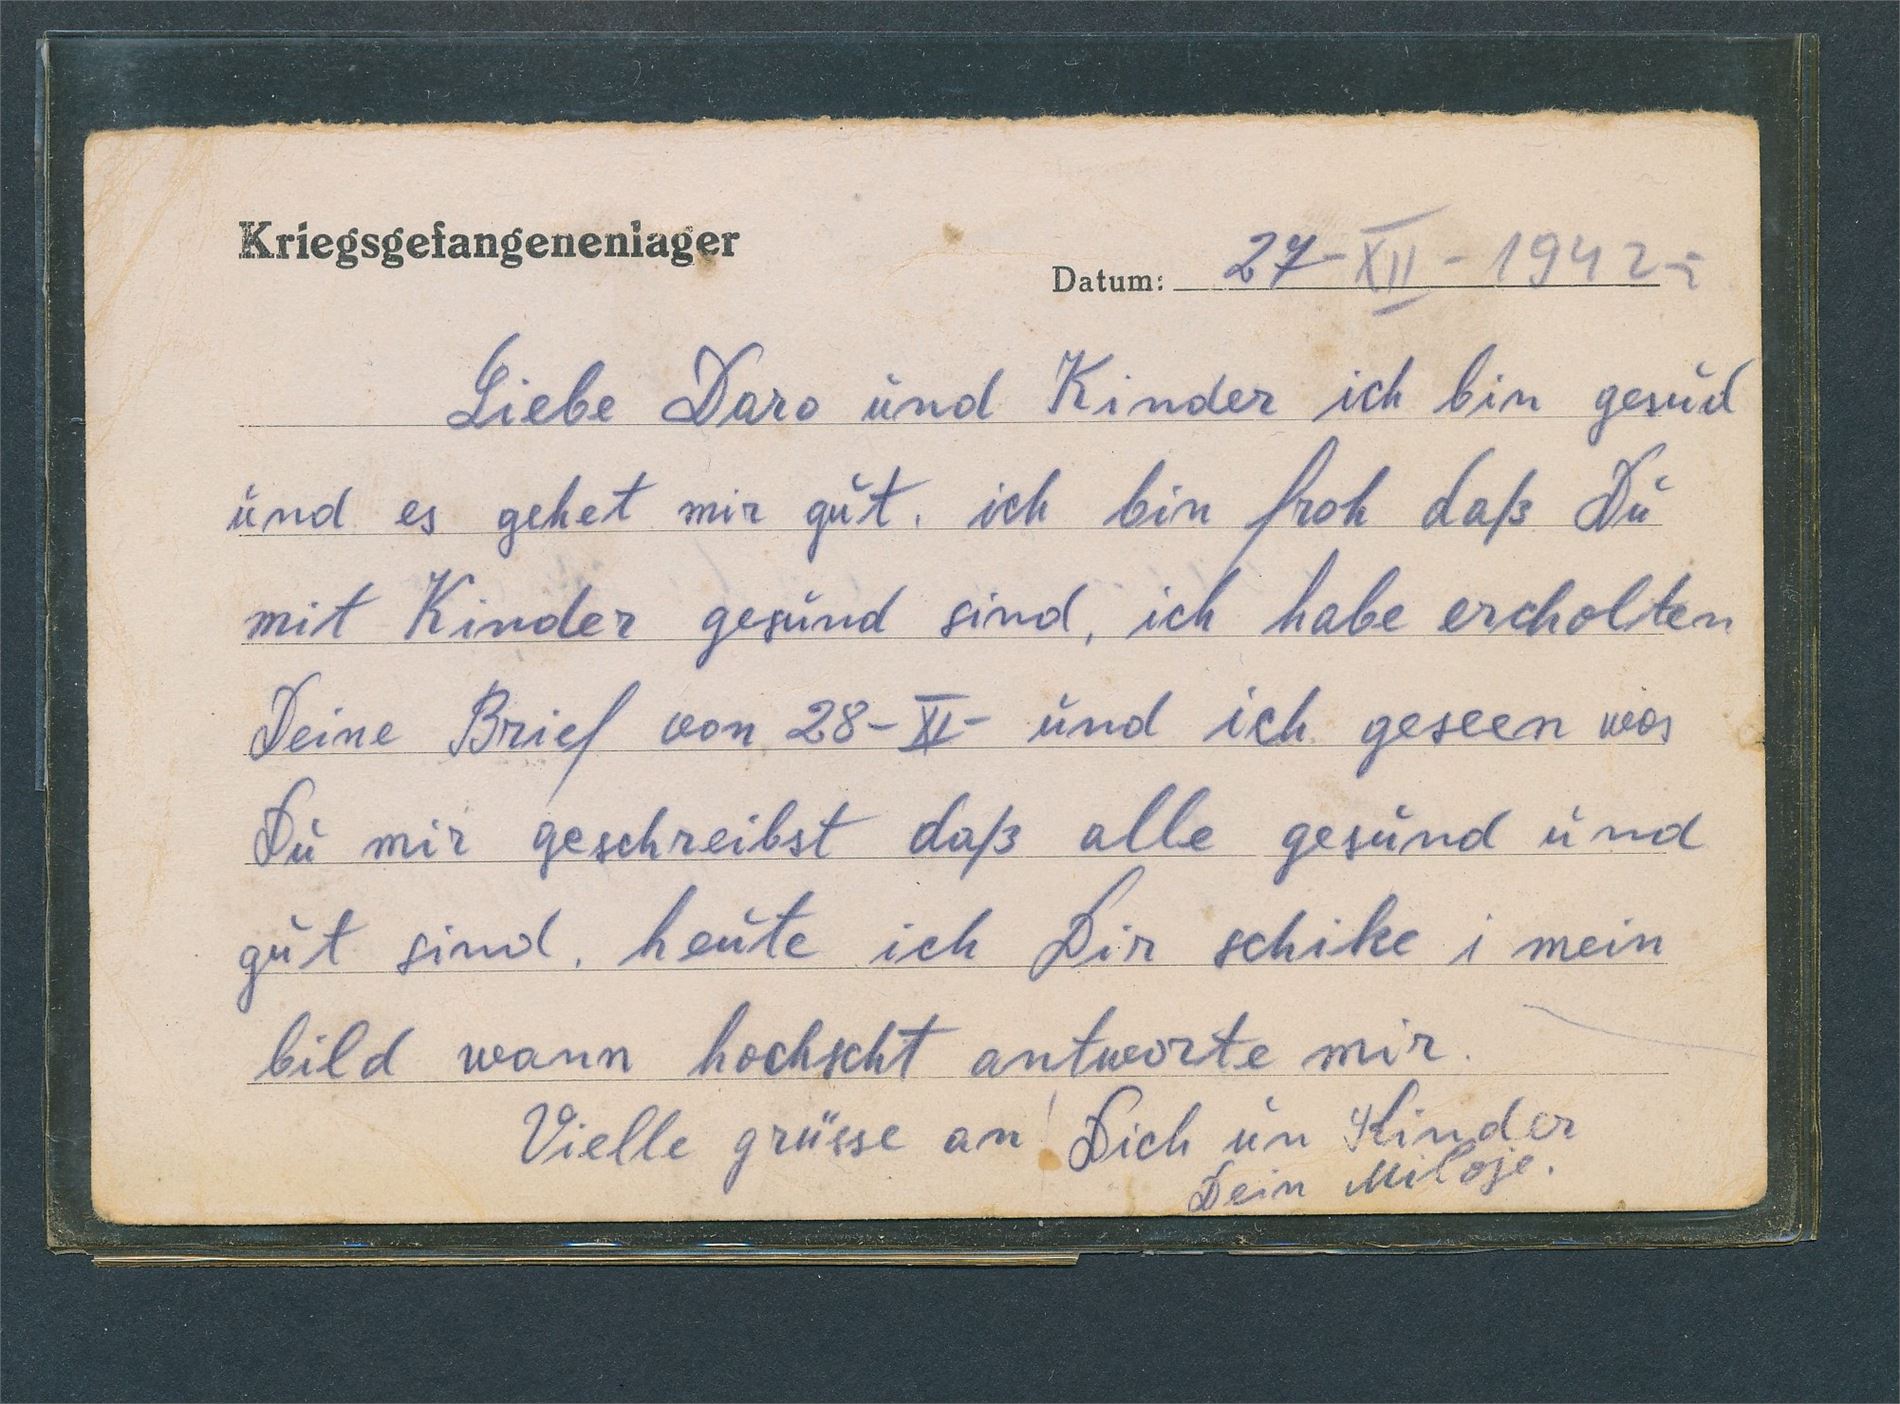 Kriegsgefangenenlager
Datum: 27-XII-1942-
Liebe Daro und Kinder ich bin gesud
und es gehet mir gut. ich bin froh daß Du
mit Kinder gesund sind, ich habe ercholten
Deine Brief von 28-XI- und ich geseen was
Du mir geschreibst daß alle gesund und
gut sind. heute ich Dir schike i mein
bild wann hochscht antworte mir.
Vielle grüsse an Dich un Kinder
Dein Miloje.